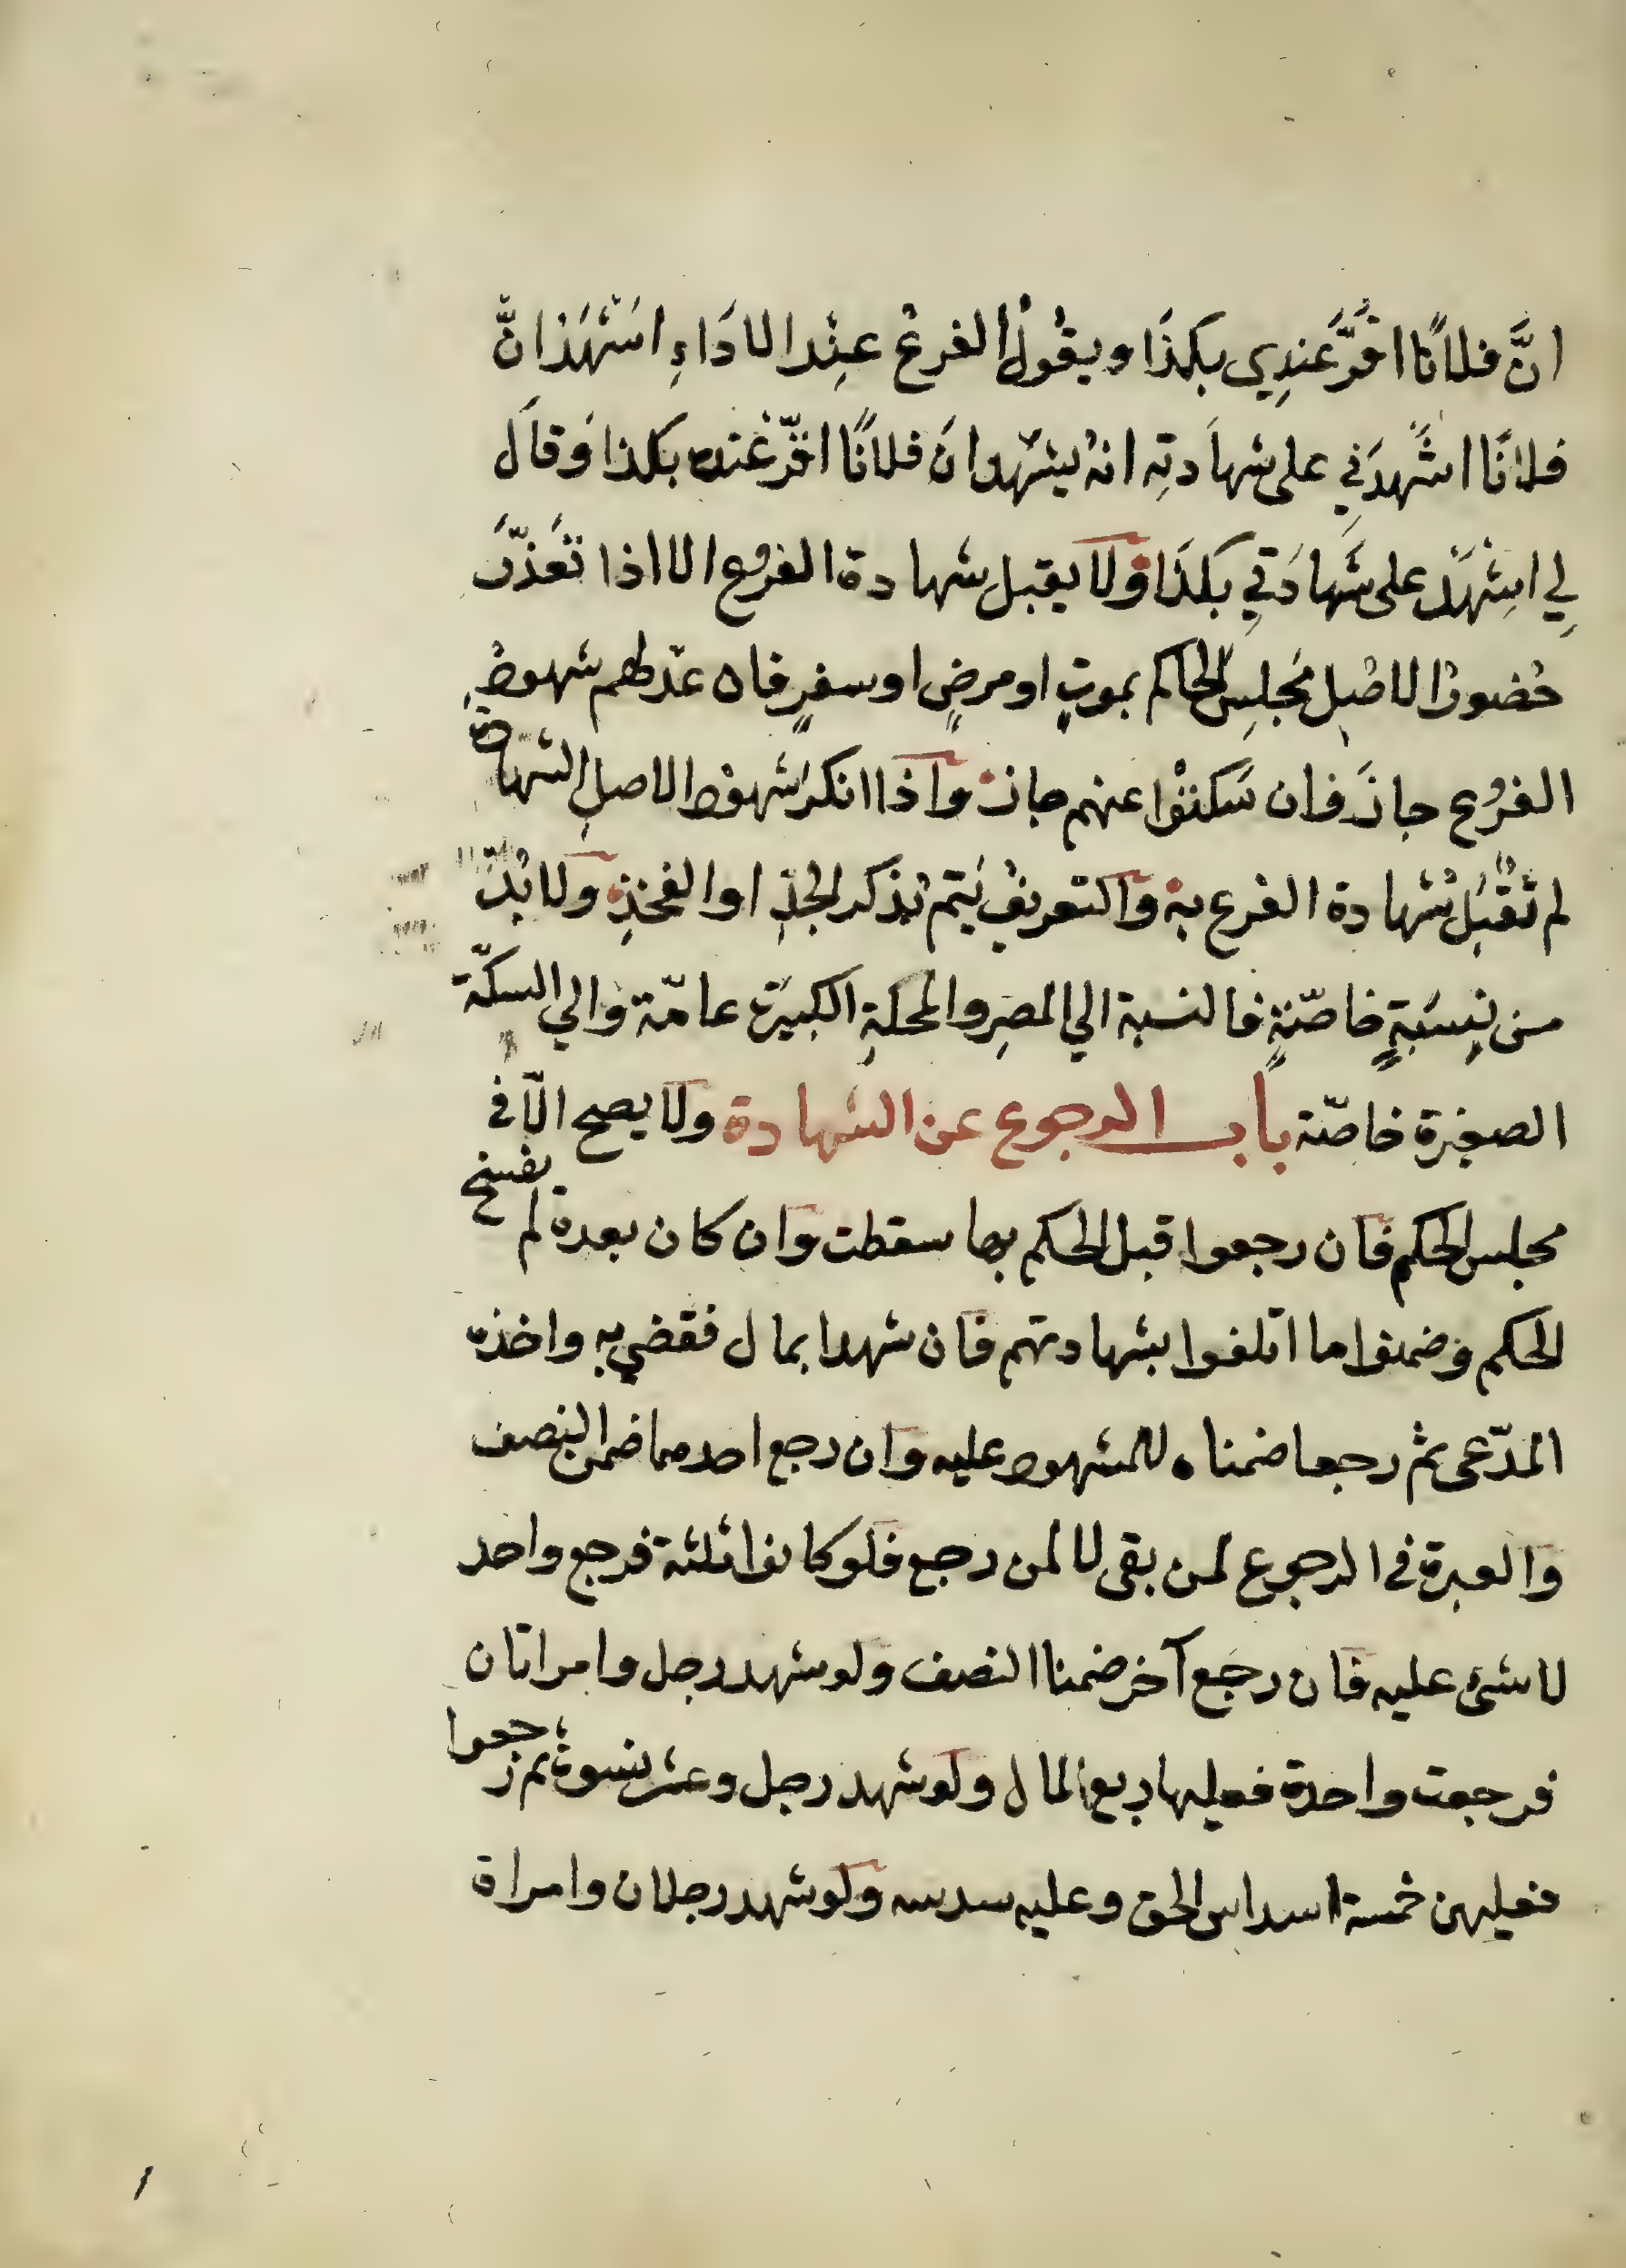 انَّ فلانًا اقَرَّ عندِي بكذَا ويقُولُ الفرعُ عنِدَ الادَاءِ اشَهَدُ انَّ
فلانًا اشَهدَنِي على شهادتِه انهُ يشهد انَ فلانًا اقرّ عنده بكذا وَقالَ
لِي اشِهَدْ على شَهادَتِي بكذَا وَلا يقبل شهادة الفروع الا اذا تَعَذّرَ
حُضورُ الاصْلِ مَجلِسَ الحاكم بموتٍ او مرضٍ او سفرٍ فان عدلهم شهود
الفرُوع جازَ فان سَكتوْا عنهم جازَ واذا انكرَ شهود الاصلِ الشهادة
لم تُقْبَل شهادة الفرع بهْ والتعريفُ يَتم بذكر الجدِّ او الفخذِ ولا بُدّ
من نِسَبَةٍ خاصّةٍ فالنسبة الي المصِرِ والمحلةِ الكبيرة عامّة والي السكّة
الصغيرة خاصّة باب الرجوع عن الشهادة ولا يصح الّا في
مجلس الحكم فان رجعوا قبل الحكم بها سقطت وان كان بعده لم يفسخ
الحكم وضمنوا ما اتلفوا بشهادتهم فان شهدا بمال فقضي به واخذه
المدّعى ثم رجعا ضمناه للمشهود عليه وان رجع احدهما ضمن النصف
والعبرة في الرجوع لمن بقى لا لمن رجع فلو كانوا ثلثة فرجع واحد
لا شئ عليه فان رجَع آخر ضمنا النصف ولو شهد رجل وامراتان
فرجعت واحدة فعليها ربع المال ولو شهد رجل وعشر نسوة ثم رجعوا
فعليهن خمسة اسداس الحق وعليه سدسه ولو شهد رجلان وامراة